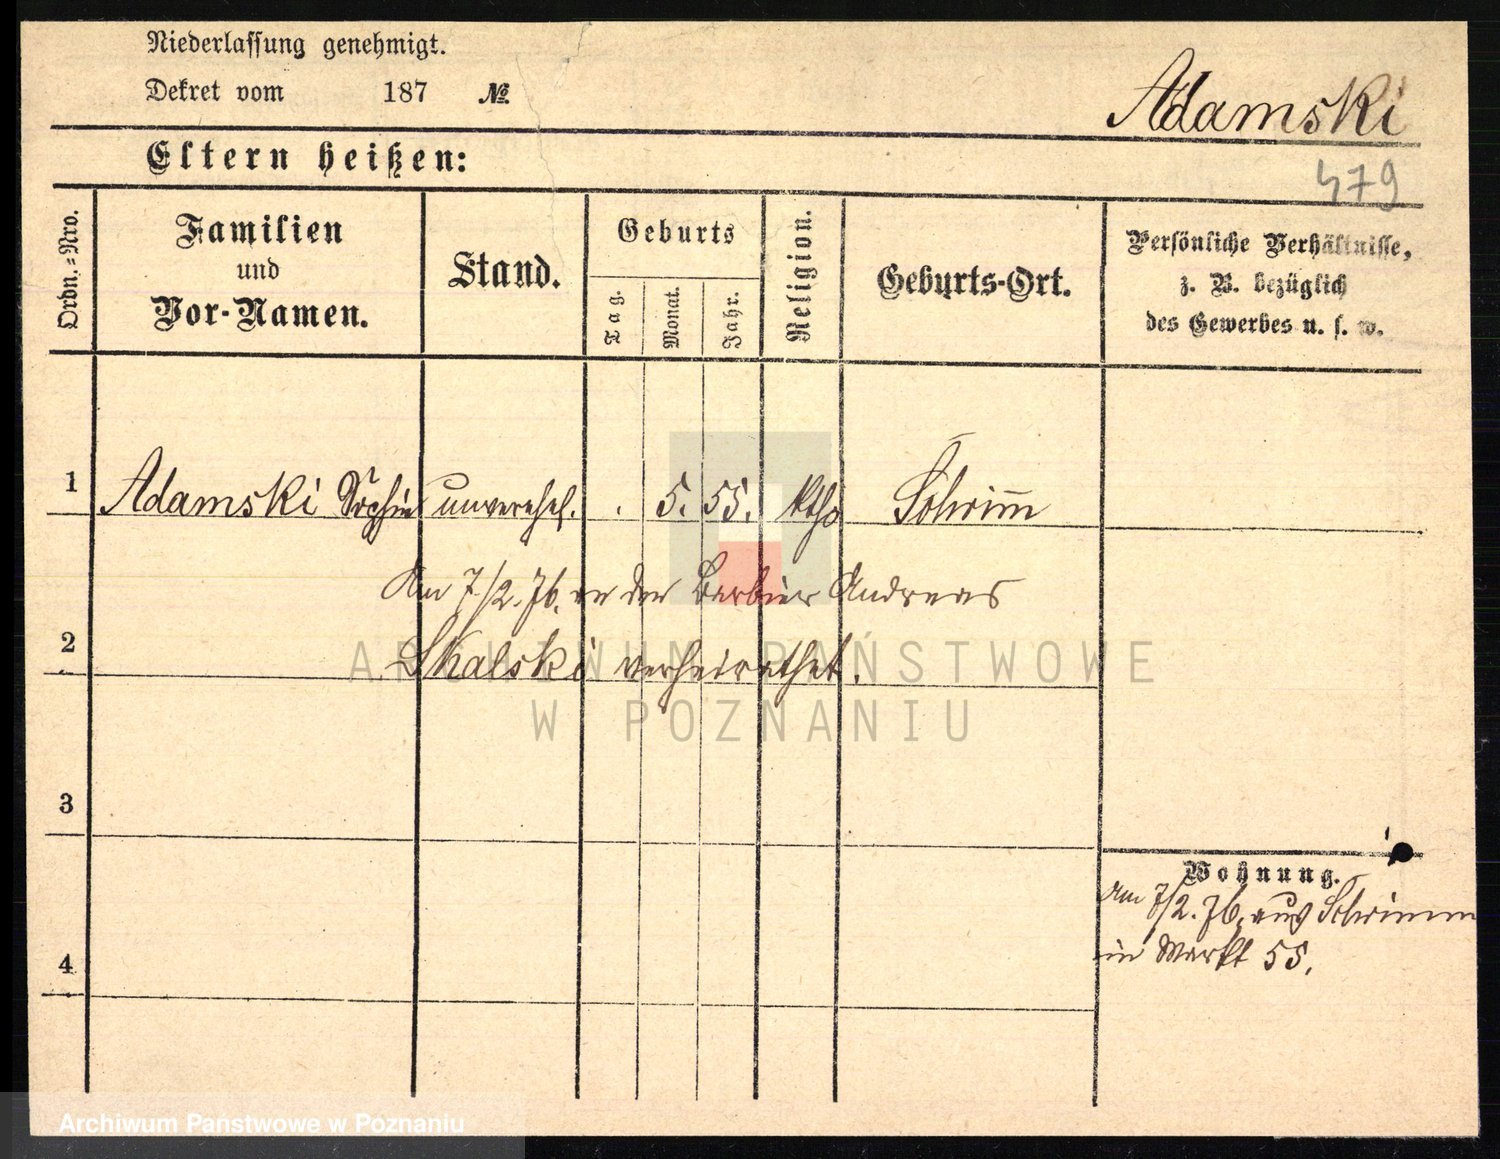 Niederlassung genehmigt.
Dekret vom 187 №
Adamski
Eltern heißen:
479
Ordn.-Nro.
Familien
und
Vor-Namen.
Stand.
Geburts
Tag.
Monat.
Jahr.
Religion.
Geburts-Ort.
Persönliche Verhältnisse,
z. B. bezüglich
des Gewerbes u. s. w.
1 Adamski Sophie unverehel. . 5. 55. kth Schrimm
Am 7/2. 76. an den Barbier Andreas
2
Skalski verheirathet.
ARCHIWUM PAŃSTWOWE
W POZNANIU
3
Wohnung.
Am 7/2. 76. aus Schrimm
in Markt 55.
4
Archiwum Państwowe w Poznaniu